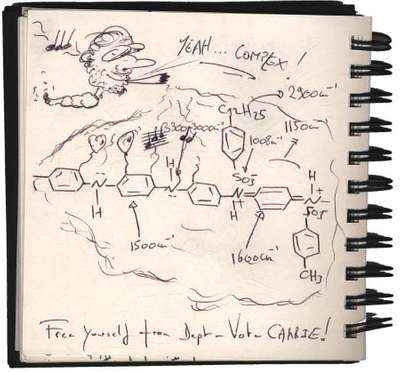 YEAH... COMPLEX!
2900cm⁻¹
C12H25
3300-3000cm⁻¹
1008cm⁻¹
1150cm⁻¹
SO3
H
H
N
N
N
N
H
H
SO3
1500cm⁻¹
1600cm⁻¹
CH3
Free Yourself from Dept - Vote CARRIE!